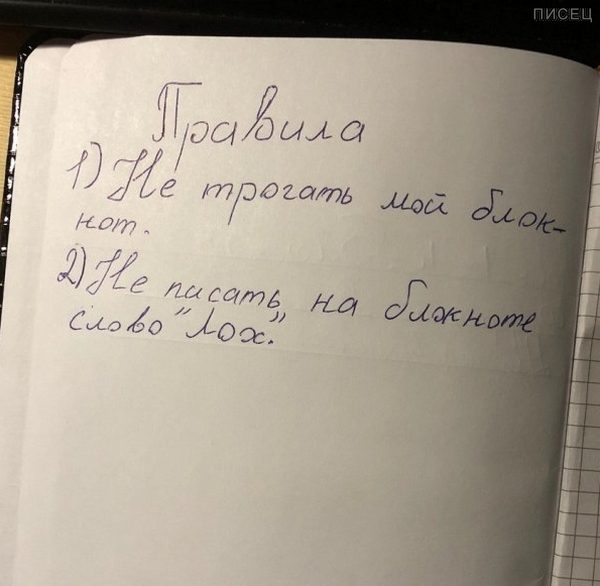 ПИСЕЦ
Правила
1) Не трогать мой блок-
нот.
2) Не писать на блокноте
слово "Лох."